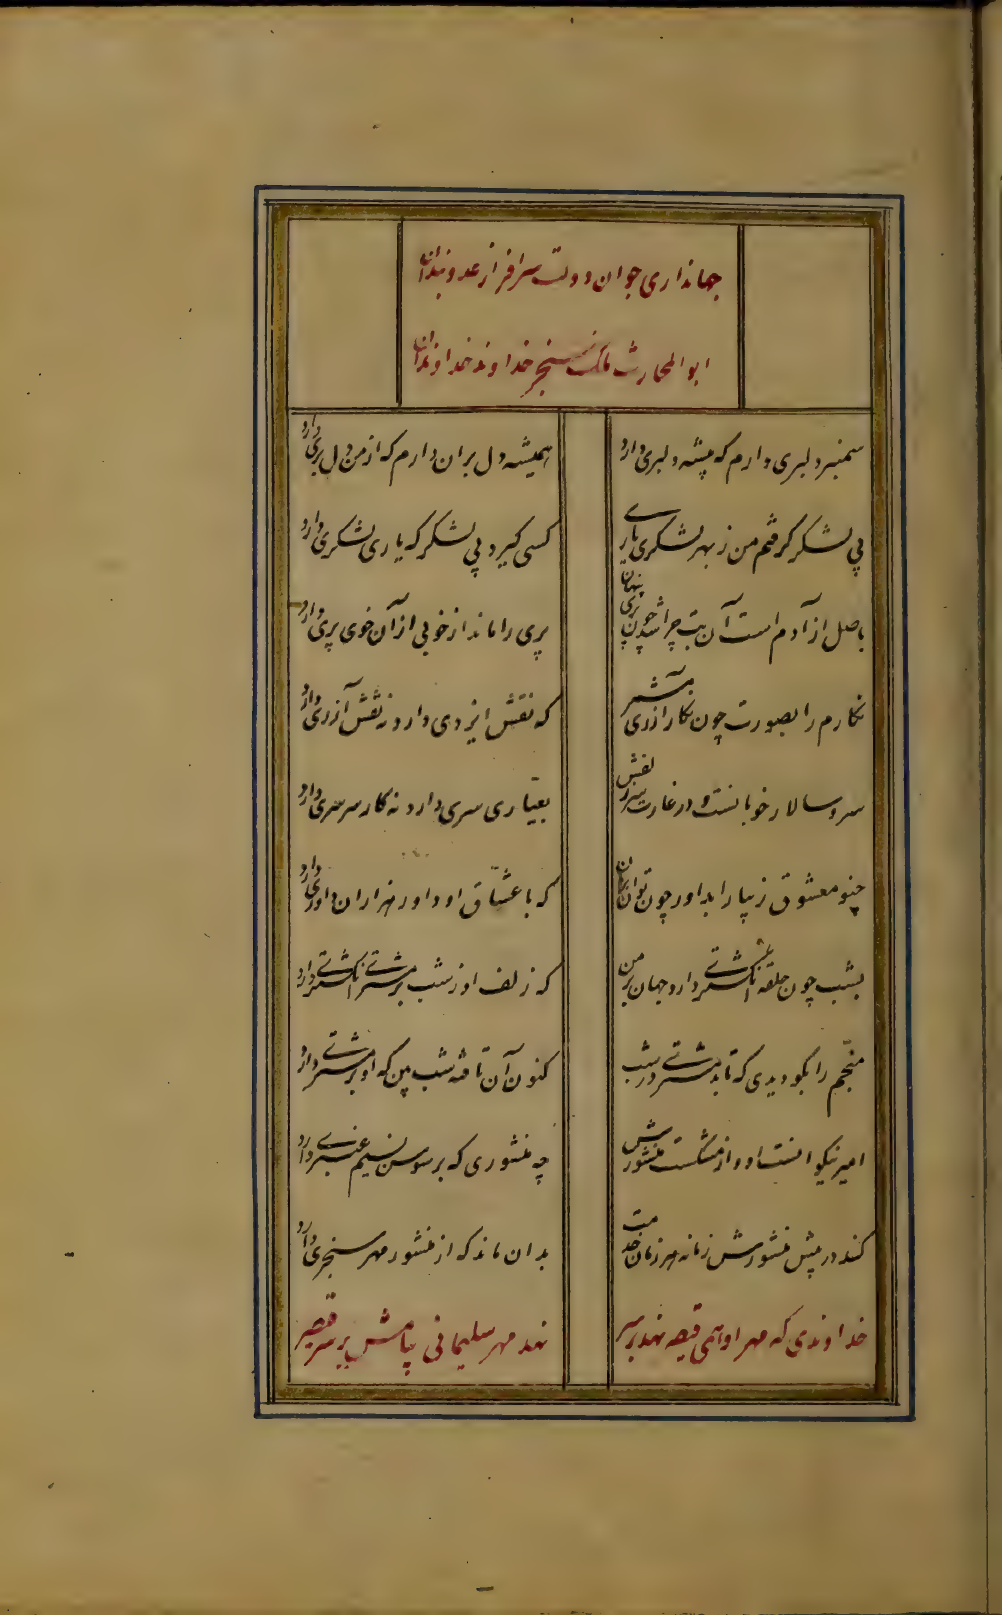 جهانداری جوان دولت سرافراز عدو بندان
ابو الحارث ملک سنجر خداوند خداوندان
سمنبر دلبری دارم که پیشه دلبری دارد
همیشه دل بران دارم که از من دل بری دارد
پی لشکر گرفتم من ز بهر لشکری یاری
کسی گیرد پی لشکر که یاری لشکری دارد
باصل از آدم است آن بت چرا شد چون پری پنهان
پری را ماند از خوبی از آن خوی پری دارد
نکارم را بصورت چون نکار آزری مشمر
که نقش ایزدی دارد نه نقش آزری دارد
سر و سالار خوبانست و در غارت سر زلفش
بعیاری سری دارد نه کار سرسری دارد
چنو معشوق زیبا را بداور چون توان بردن
که با عشاق او داور هزاران داوری دارد
بشب چون حلقه انکشتری دارد جهان بر من
که زلف او ز شب بر مشتری انکشتری دارد
منجم را بکو دیدی که تابد مشتری در شب
کنون آن تافته شب بین که او بر مشتری دارد
امیر نیکوانست او و از مشکست منشورش
چه منشوری که بر سوسن نسیم عنبری دارد
کند در پیش منشورش زمانه هر زمان خدمت
بدان ماند که از منشور مهر سنجری دارد
خداوندی که مهر او همی قیصر نهد بر سر
نهد مهر سلیمانی پیامش بر سر قیصر